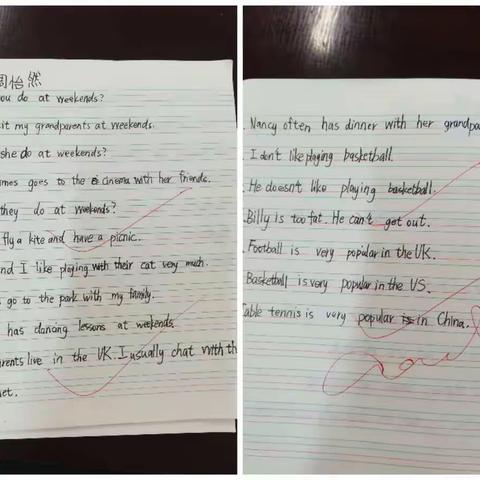 周怡然
ou do at weekends?
it my grandparents at weekends.
she do at weekends?
mes goes to the cinema with her friends.
they do at weekends?
fly a kite and have a picnic.
nd I like playing with their cat very much.
s go to the park with my family.
has dancing lessons at weekends.
arents live in the UK. I usually chat with th
et.
Nancy often has dinner with her grandpa
I don't like playing basketball.
He doesn't like playing basketball.
Billy is too fat. He can't get out.
Football is very popular in the UK.
Basketball is very popular in the US.
Table tennis is very popular in China.